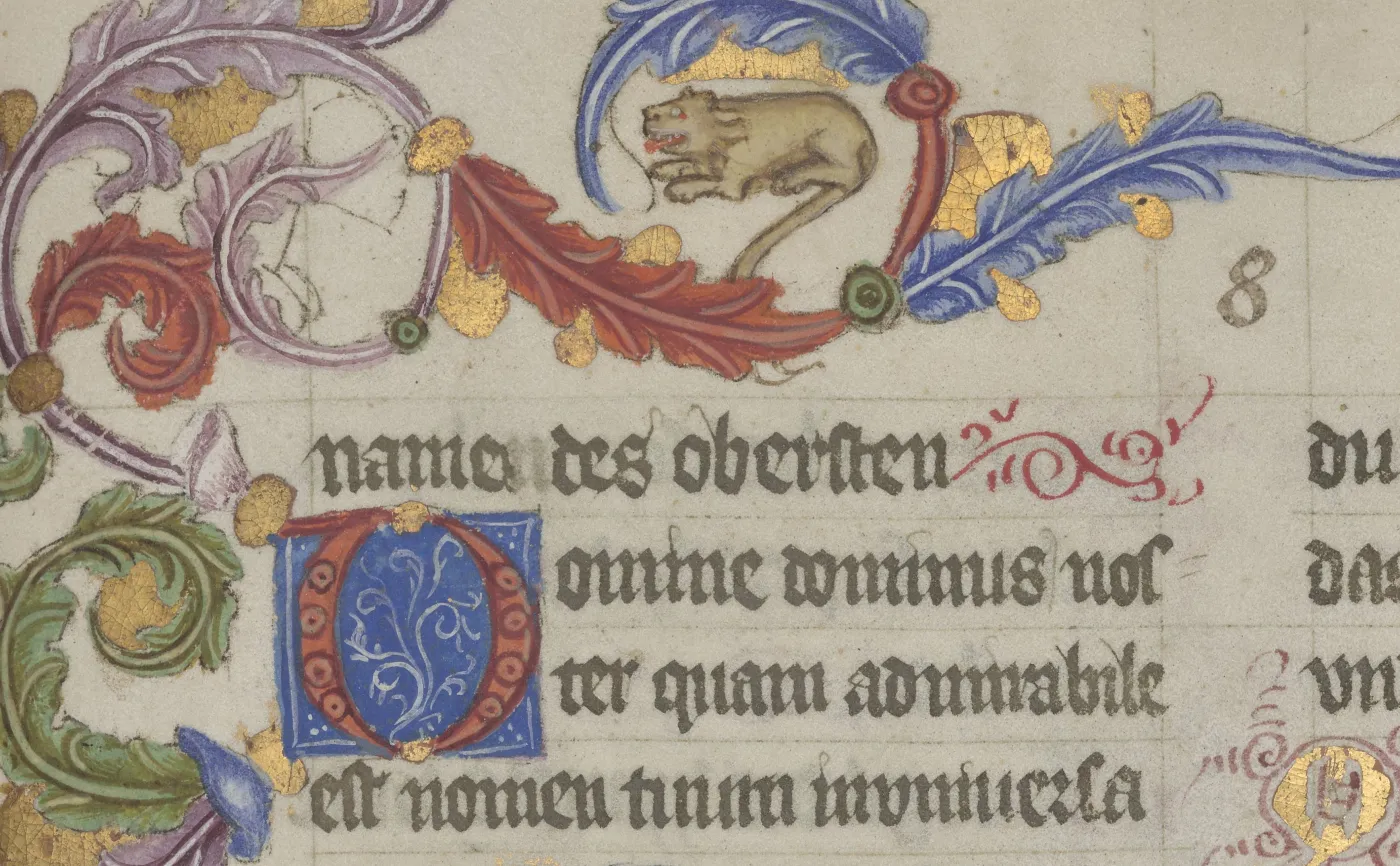 8
namen des obersten
Omine dominus nos
ter quam admirabile
est nomen tuum inuniuersa
du
das
vn